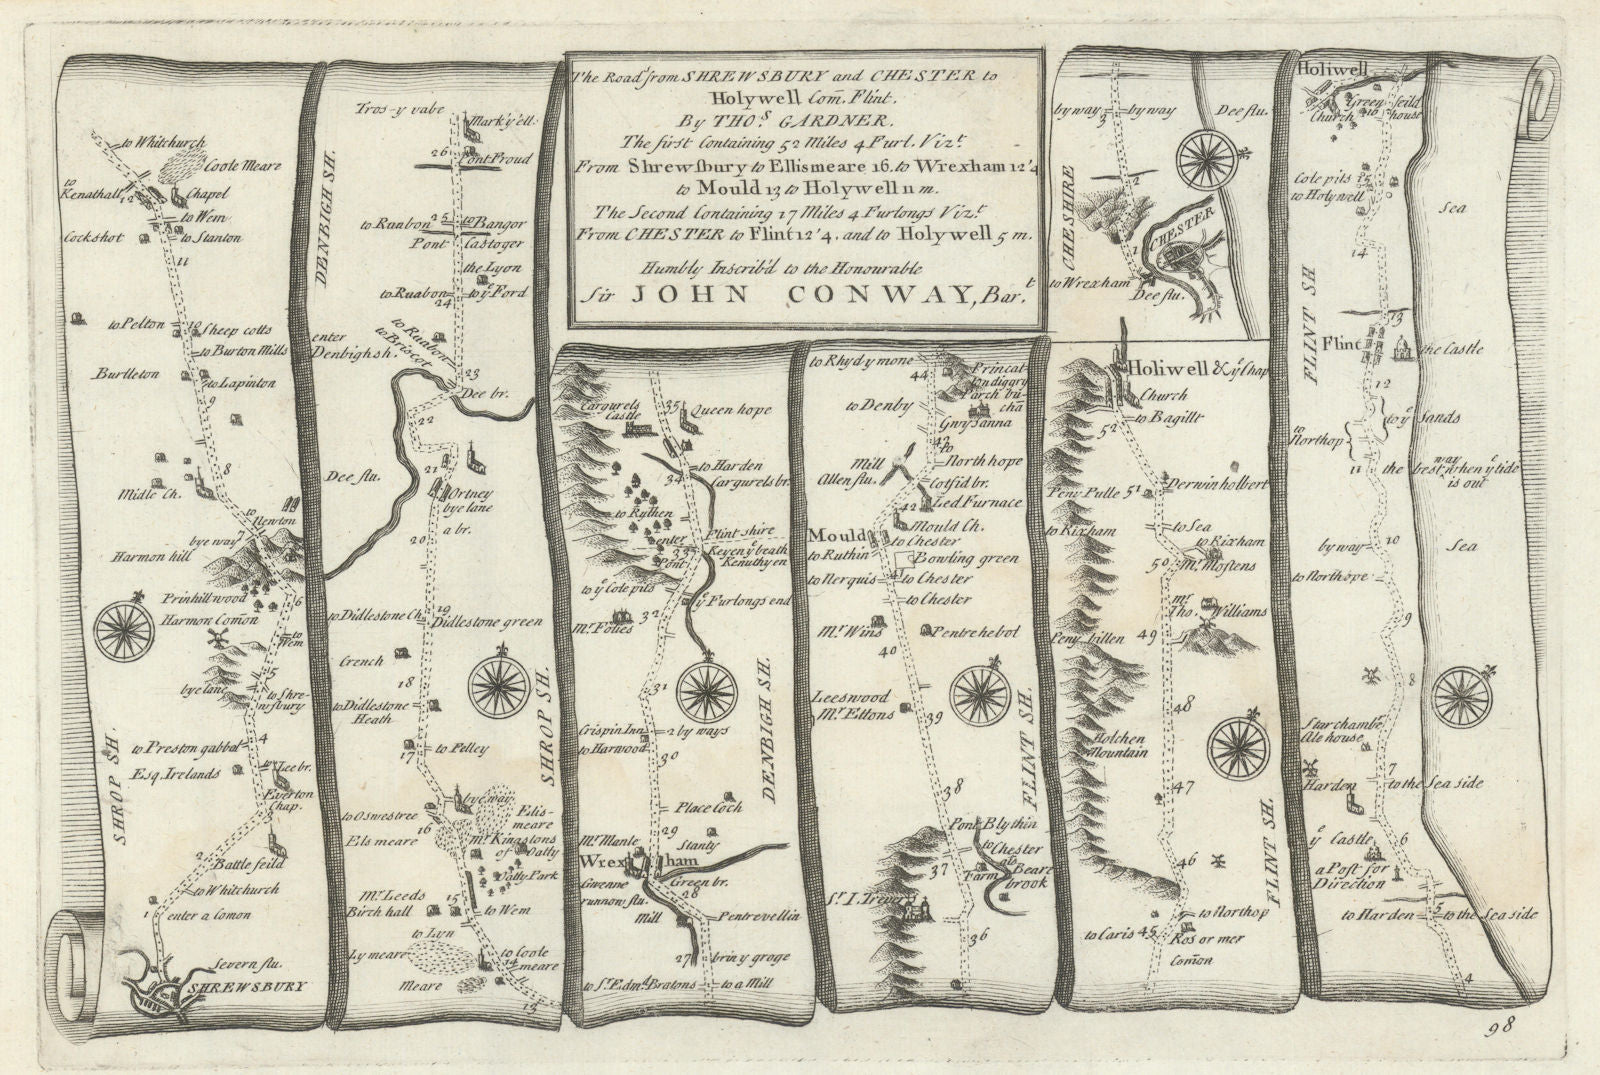 The Road from SHREWSBURY and CHESTER to
Holywell Com̅. Flint.
By THOS. GARDNER.
The first Containing 52 Miles 4 Furl. Vizt.
From Shrewsbury to Ellismeare 16. to Wrexham 12'4
to Mould 13 to Holywell 11 m.
The Second Containing 17 Miles 4 Furlongs Vizt.
From CHESTER to Flint 12'4. and to Holywell 5 m.
Humbly Inscrib'd to the Honourable
Sir JOHN CONWAY, Bart.
to Whitchurch
Coole Meare
to Kenathall
12
Chapel
to Wem
Cockshot
to Stanton
11
to Pelton
10
Sheep cotts
to Burton Mills
Burtleton
to Lapinton
9
8
Midle Ch.
to Newton
bye way
7
Harmon hill
Prinhill wood
6
Harmon Comon
to Wem
5
bye lane
to Shrewsbury
4
to Preston gabbal
Esq. Irelands
to Lee br.
Everton Chap.
2
Battle feild
to Whitchurch
1
enter a Comon
Severn flu.
SHREWSBURY
SHROP SH.
DENBIGH SH.
Tros-y vabe
Mark y'ell
26
Pont Froud
to Ruabon
25
to Bangor
Pont
Castoger
the Lyon
to Ruabon
24
to ye Ford
to Ruabon
to Briscot
enter
Denbighsh.
23
Dee br.
22
Dee flu.
21
Ortney
bye lane
a br.
20
to Didlestone Ch.
19
Didlestone green
Crench
18
to Didlestone
Heath
17
to Pelley
bye way
to Oswestree
16
Elismeare
Els meare
Mr Kingstons
of Oatly
Oatly Park
Mr Leeds
Birch hall
15
to Wem
to Lyn
Ly meare
to Coole
meare
14
Meare
13
SHROP SH.
35
Queen hope
Cargurels
Castle
to Harden
34
Cargurels br.
to Rythen
Flint shire
enter
33
Pont
Keyen ye beath
Kenuthyen
to ye Cole pits
ye Furlongs end
32
Mr Foties
31
Crispin Inn
2 by ways
to Harwood
30
Place Coch
29
Mr Manle
Stanty
Wrexham
Gwenne
runnow flu.
Green br.
28
Mill
Pentrevellin
27
brin y groge
to Sr Edmd Bratons
to a Mill
DENBIGH SH.
to Rhydy mone
44
Princat
ondiggry
Parch bu
cha
to Denby
Gwysanna
43
to
North hope
Mill
Allen flu.
Cotsid br.
Led Furnace
42
Mould Ch.
Mould
to Chester
to Ruthin
Bowling green
to Nerquis
41
to Chester
to Chester
Mr Wins
Pentrehebol
40
Leeswood
Mr Ettons
39
38
Pont Blythin
to Chester
37
a br.
Farm
Beare
brook
Sr I. Trevers
36
FLINT SH.
Holiwell & ye Chap
Church
to Bagillt
52
Peny Pulle
51
Derwinholbert
to Rixham
to Sea
to Rixham
50
Mr Mostens
Mr
Tho. Williams
Peny billen
49
48
Holchen
Mountain
47
46
to Northop
to Caris
45
Ros or mer
Com̅on
FLINT SH.
by way
by way
3
Dee flu.
2
CHESHIRE
CHESTER
1
to Wrexham
Dee flu.
Holiwell
Green feild
house
16
Church
Cole pits
15
to Holywell
Sea
14
FLINT SH
13
Flint
the Castle
12
to ye Sands
to
Northop
11
the best way when ye tide
is out
by way
10
Sea
to Northope
9
8
Star chambr
Ale house
7
to the Sea side
Harden
6
ye Castle
a Post for
Direction
to Harden
5
to the Sea side
4
98